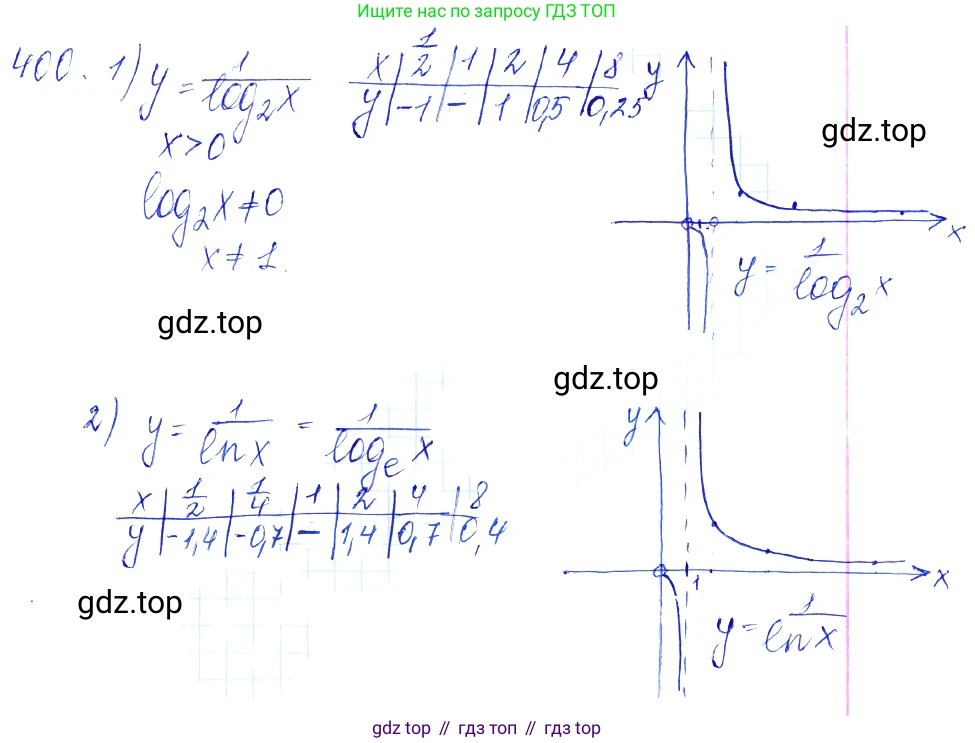 Ищите нас по запросу ГДЗ ТОП
400. 1) y = 1/log₂x
x | 1/2 | 1 | 2 | 4 | 8
y | -1 | - | 1 | 0,5 | 0,25
x > 0
log₂x ≠ 0
x ≠ 1.
y
x
1
y = 1/log₂x
gdz.top
gdz.top
gdz.top
2) y = 1/ln x = 1/logₑx
x | 1/2 | 1/4 | 1 | 2 | 4 | 8
y | -1,4 | -0,7 | - | 1,4 | 0,7 | 0,4
y
x
1
y = 1/ln x
gdz.top
gdz top // гдз топ // гдз top